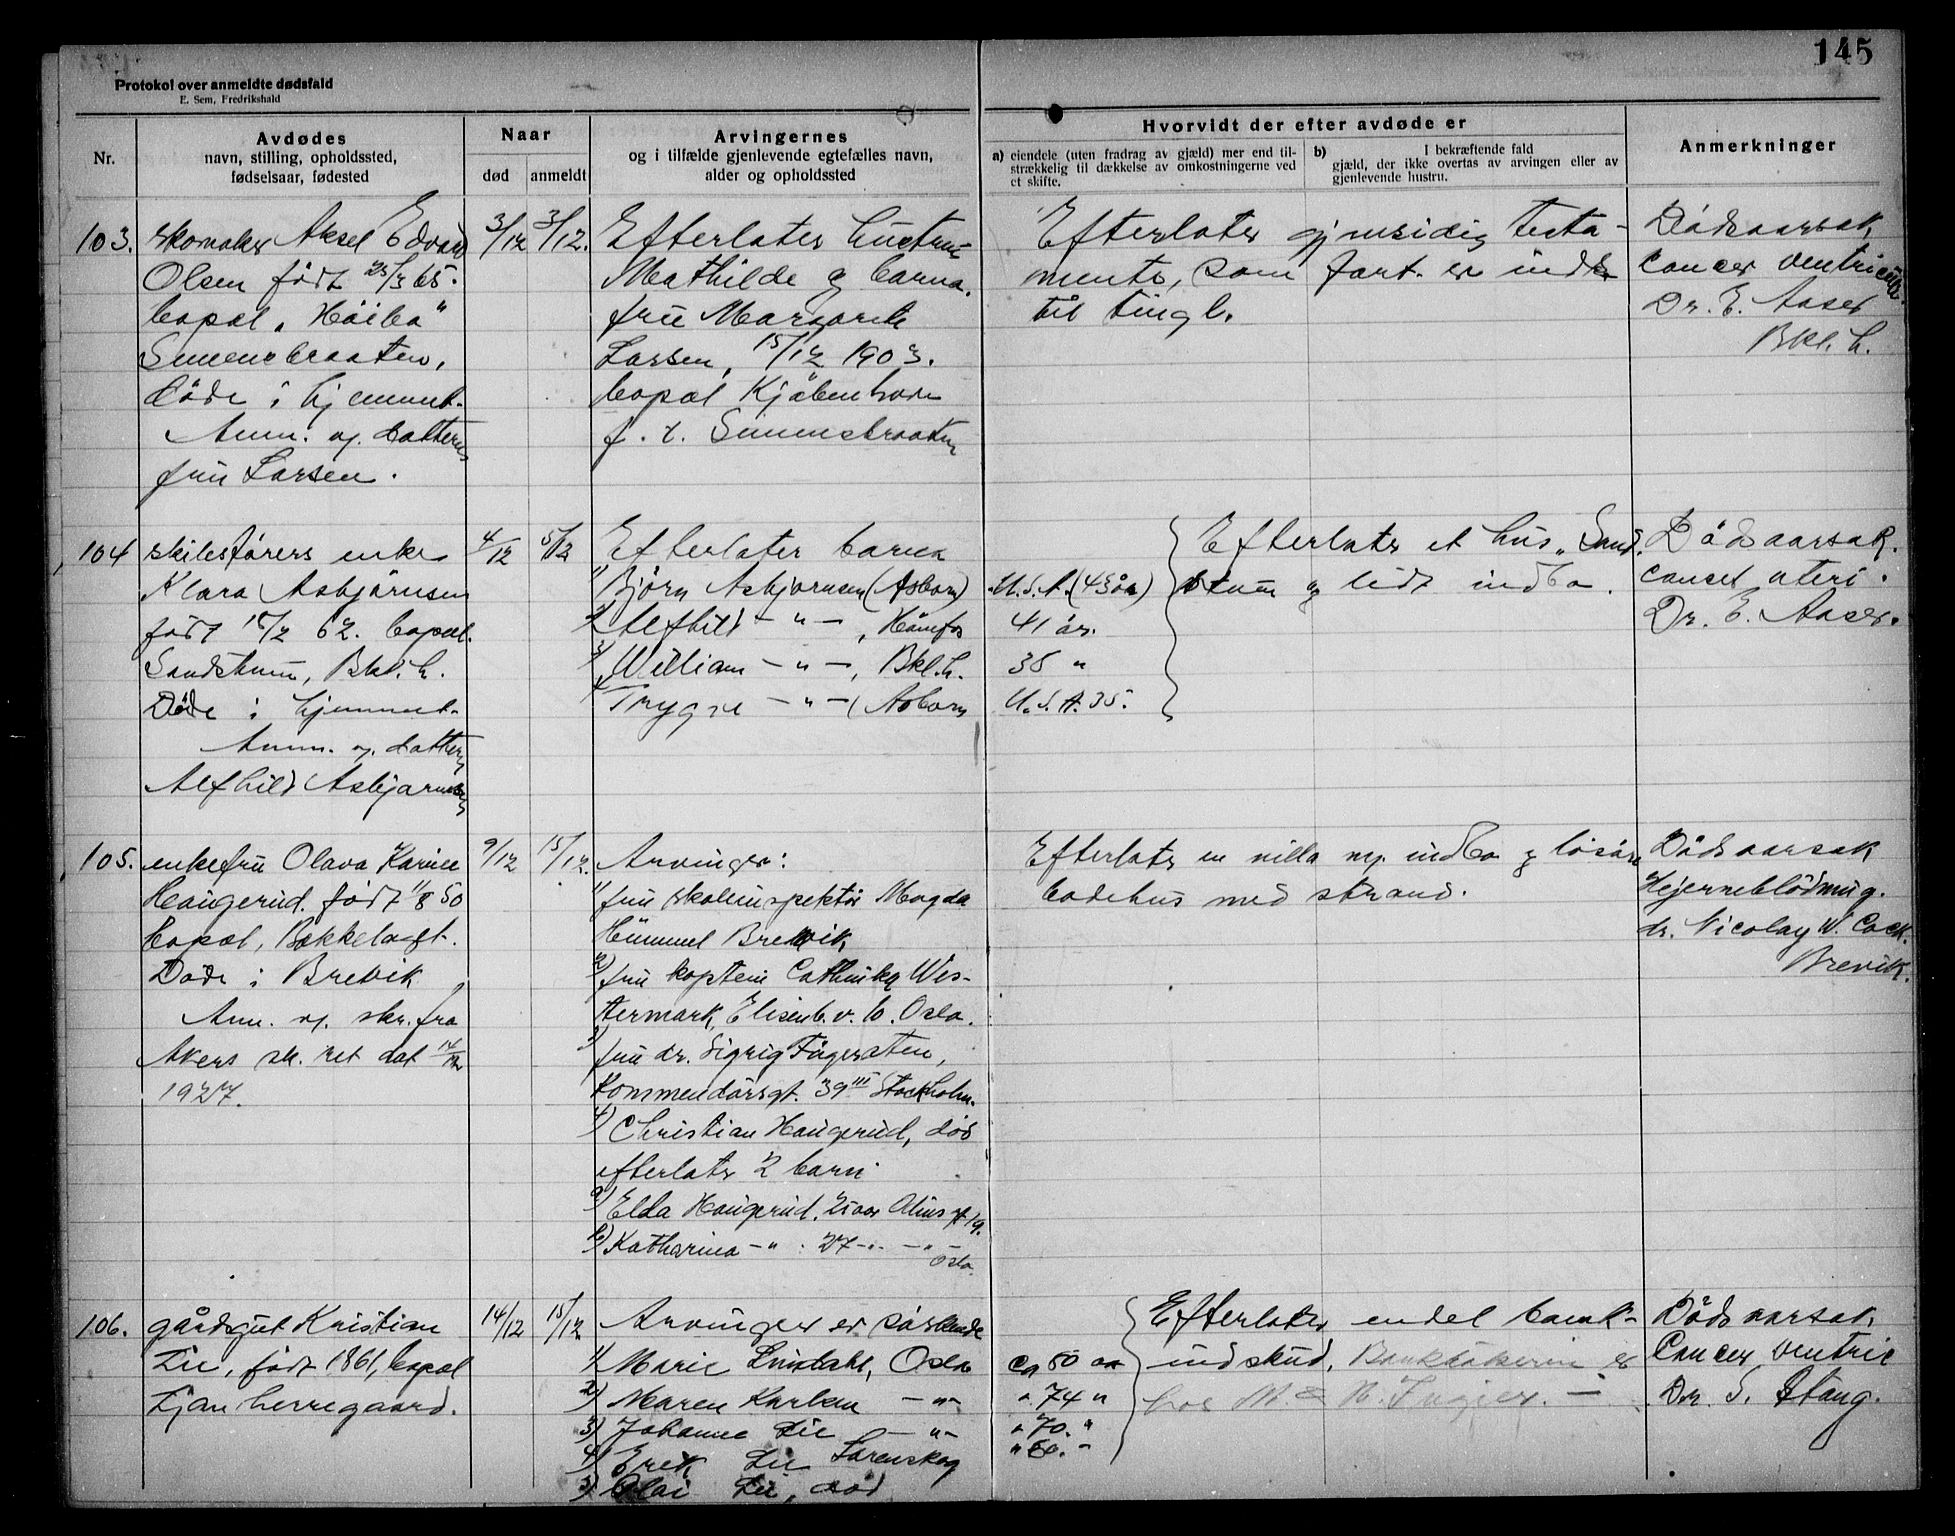 145
Protokol over anmeldte dødsfald
E. Sem, Fredrikshald
Nr.
Avdødes
navn, stilling, opholdssted,
fødselsaar, fødested
Naar
død
anmeldt
Arvingernes
og i tilfælde gjenlevende egtefælles navn,
alder og opholdssted
Hvorvidt der efter avdøde er
a) eiendele (uten fradrag av gjæld) mer end til-
strækkelig til dækkelse av omkostningerne ved
et skifte.
b) I bekræftende fald
gjæld, der ikke overtas av arvingen eller av
gjenlevende hustru.
Anmerkninger
103.
skomaker Aksel Edvard
Olsen født 25/3 65.
bopæl „Høibo"
Simensbraaten,
Døde i hjemmet.
Anm. av datteren
fru Larsen.
3/12
3/12.
Efterlater hustru
Mathilde og barna.
fru Margarete
Larsen, 15/12 1903.
bopæl Kjøbenhavn
f. t. Simensbraaten
Efterlater gjensidig testa-
mente, som fort. er inds
til tingl.
Dødsaarsak
cancer ventriculi.
Dr. E. Aaser
Bkl. h.
104
skibsførers enke
Klara Asbjørnsen
født 15/2 62. bopæl.
Sandstrum, Bkl. h.
Døde i hjemmet.
Anm. av datteren
Alfhild Asbjørnsen
4/12
5/12
Efterlater barna
1) Bjørn Asbjørnsen (Asborn) U.S.A. (43 år)
2) Alfhild - " - , Hønefos 41 år.
3) William - " - , Bkl. h. 38 "
4) Trygve - " - (Asborn U.S.A. 35.
Efterlater et hus „Sand-
strum og lidt indbo.
Dødsaarsak.
cancer uteri.
Dr. E. Aaser.
105.
enkefru Olava Karine
Haugerud. født 1/8 50
bopæl, Bekkelaget.
Døde i Brevik
Anm. av. skr. fra
Akers sk. ret dat 14/12
1927.
9/12
15/12.
Arvinger:
1) fru skoleinspektør Magda
Hummel Brevik
2) fru kaptein Cathinka Wes-
termark, Elisenb. v. 6. Oslo.
3) fru dr. Sigrig Fågersten,
Kommendørsgt. 39 III Stockholm.
4) Christian Haugerud, død
efterlater 2 barn
a) Elda Haugerud. 25 aar 19.
b) Katharina - " - 27 - " - - " -
Oslo.
Efterlater en villa m. indbo og løsøre
badehus med strand.
Dødsaarsak
Hjerneblødning.
dr. Nicolay W. Cock.
Brevik.
106.
gårdsgut Kristian
Lie, født 1861, bopæl
Ljan herregaard.
14/12
15/12
Arvinger er søskende
1) Marie Lindahl, Oslo ca 80 aar
2) Maren Karlsen - " - " 74 "
3) Johanne Lie - " - " 70. "
4) Erik Lie Lørenskog " 60. "
5) Olai Lie, død
Efterlater endel bank-
indskud, Bankbøkerne er
hos M. & H. Ingier.
Dødsaarsak
Cancer ventric
Dr. S. Stang.